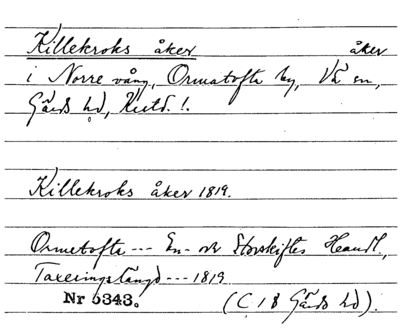 Killekroks åker åker
i Norre vång, Ormatofta by, Vä sn,
Gärds hd, Krist. l.
Killekroks åker 1819.
Ormetofta --- En- och Storskiftes Handl.,
Taxeringslängd --- 1819
Nr 5343. (C 18 Gärds hd).